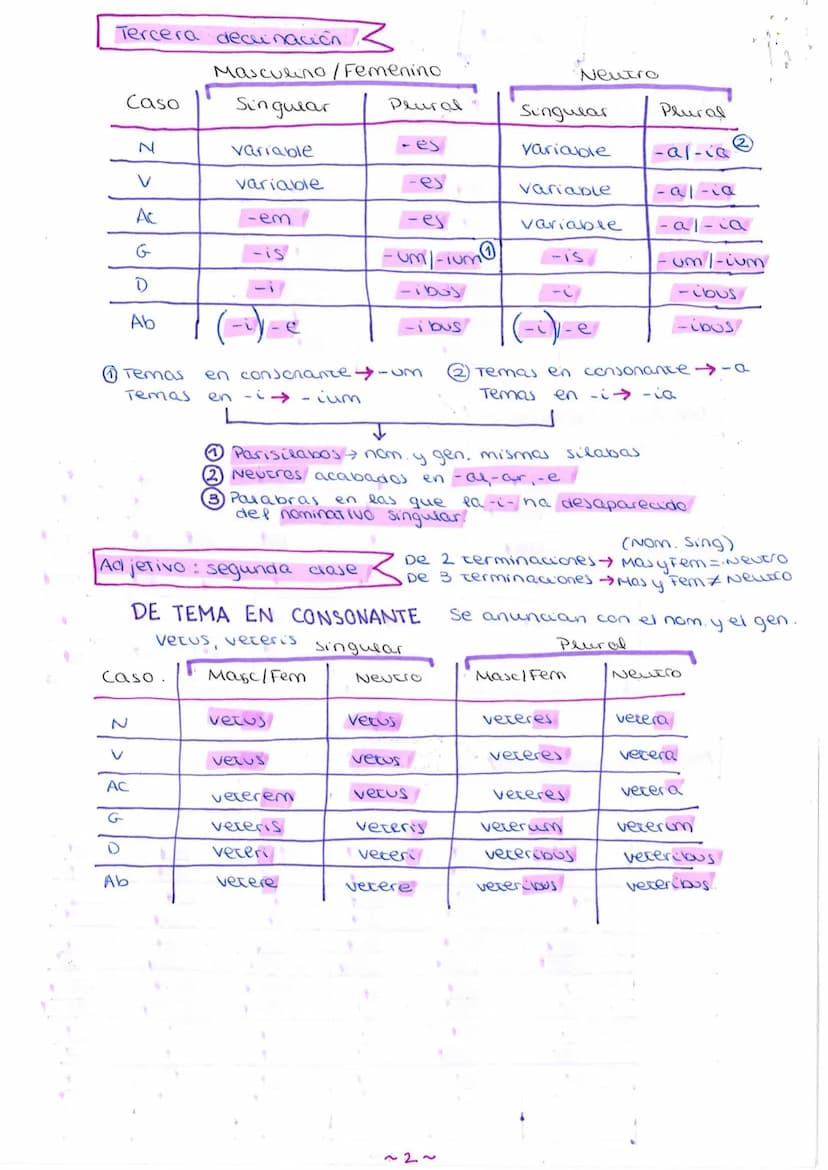 Tercera declinación
Masculino/Femenino Neutro
Caso Singular Plural Singular Plural
N variable -es variable -a/-ia ②
V variable -es variable -a/-ia
Ac -em -es variable -a/-ia
G -is -um/-ium ① -is -um/-ium
D -i -ibus -i -ibus
Ab (-i)/-e -ibus (-i)/-e -ibus
① Temas en consonante → -um ② Temas en consonante → -a
Temas en -i → -ium Temas en -i → -ia
① Parisílabos → nom. y gen. mismas sílabas
② Neutros acabados en -al, -ar, -e
③ Palabras en las que la -i- ha desaparecido
del nominativo singular.
(Nom. Sing)
Adjetivo: segunda clase De 2 terminaciones → Mas y Fem = Neutro
De 3 terminaciones → Mas y Fem ≠ Neutro
DE TEMA EN CONSONANTE Se anuncian con el nom. y el gen.
vetus, veteris singular Plural
Caso. Masc/Fem Neutro Masc/Fem Neutro
N vetus vetus veteres vetera
V vetus vetus veteres vetera
AC veterem vetus veteres vetera
G veteris veteris veterum veterum
D veteri veteri veteribus veteribus
Ab vetere vetere veteribus veteribus.
~2~